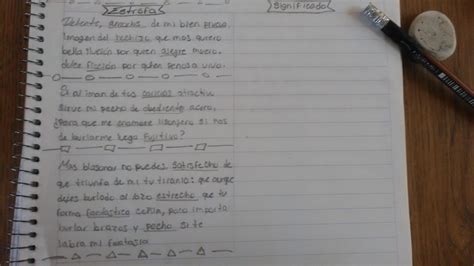 Estrofas
Significado
Detente, sombra, de mi bien
Imagen del hechizo que mas quiero
bella ilusión por quien alegre muero.
dulce ficción por quien penosa vivo.
Si al iman de tus atractivo
sirve mi pecho de obediente acero,
¿Para que me enamore lisonjero si has
de burlarme luego fugitivo?
Mas blasonar no puedes satisfecho de
que triunfa de mi tu tirania: que aunque
dejes burlado el lazo estrecho que tu
forma fantastica ceñia, poco importa
burlar brazos y pecho si te
labra mi fantasia